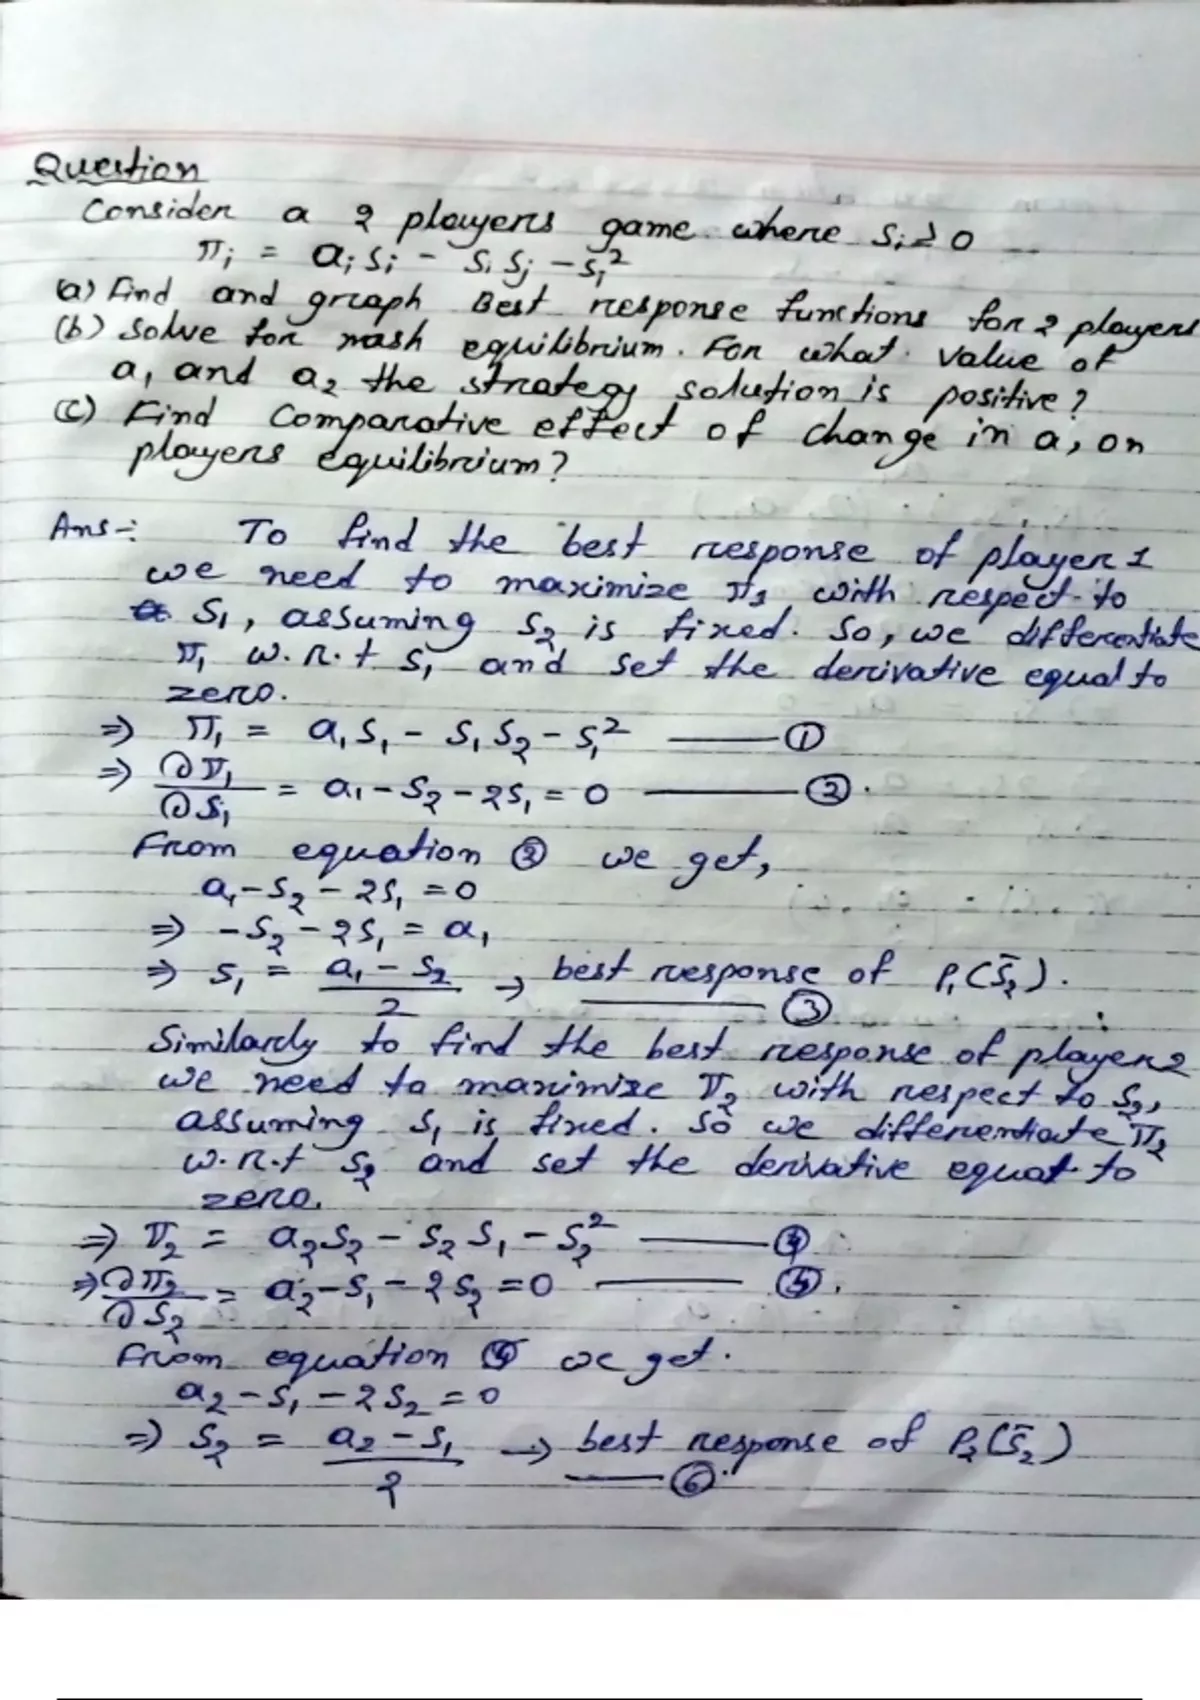 Question
Consider a 2 players game where Si ≥ 0
πi = aisi - si sj - si²
(a) Find and graph Best response functions for 2 players
(b) Solve for nash equilibrium. For what value of
a1 and a2 the strategy solution is positive?
(c) Find Comparative effect of change in a1 on
players equilibrium?
Ans -: To find the best response of player 1
we need to maximize π1 with respect to
S1, assuming S2 is fixed. So, we differentiate
π1 w.r.t S1 and set the derivative equal to
zero.
⇒ π1 = a1S1 - S1S2 - S1² —— ①
⇒ ∂π1/∂S1 = a1 - S2 - 2S1 = 0 —— ②.
From equation ② we get,
a1 - S2 - 2S1 = 0
⇒ -S2 - 2S1 = a1
⇒ S1 = (a1 - S2)/2 → best response of P1(S̄2).
—— ③
Similarly to find the best response of player 2
we need to maximize π2 with respect to S2,
assuming S1 is fixed. So we differentiate π2
w.r.t S2 and set the derivative equat to
zero.
⇒ π2 = a2S2 - S2S1 - S2² —— ④
⇒ ∂π2/∂S2 = a2 - S1 - 2S2 = 0 —— ⑤.
From equation we get.
a2 - S1 - 2S2 = 0
⇒ S2 = (a2 - S1)/2 → best response of P2(S̄2)
—— ⑥.